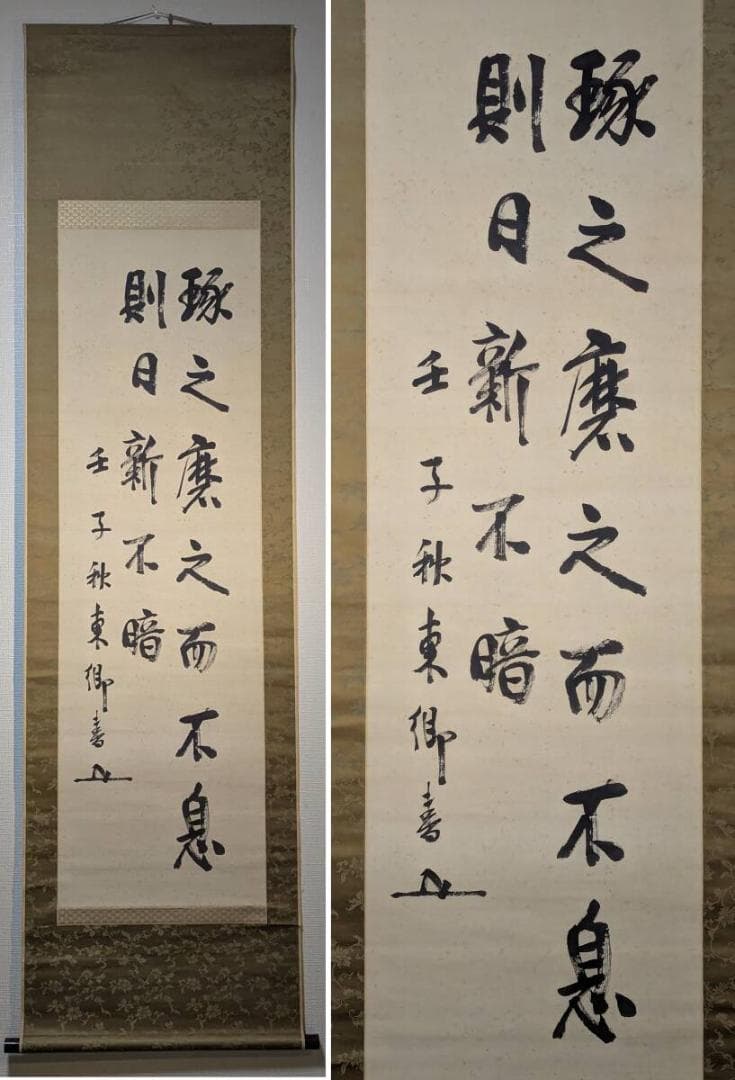 琢之磨之而不息
則日新不暗
壬子秋東卿書
琢之磨之而不息
則日新不暗
壬子秋東卿書